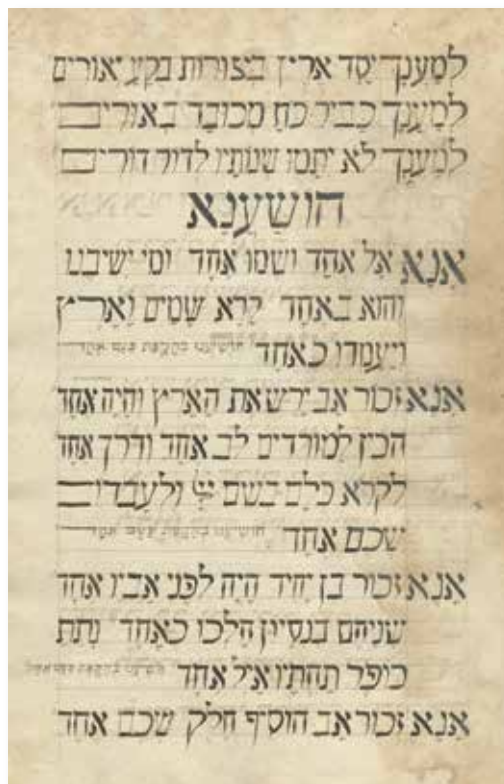 למענך יסד ארץ בצורות בקע יאורים
למענך כביר כח מכובד באורים
למענך לא יתמו שנותיו לדור דורים
הושענא
אנא אל אחד ושמו אחד ומי ישיבנו
והוא באחד קרא שמים וארץ
ויעמדו כאחד
אנא זכור אב ירש את הארץ והיה אחד
הכין למורדים לב אחד ודרך אחד
לקרא כלם בשם ולעבדו
שכם אחד
אנא זכור בן יחיד היה לפני אביו אחד
שניהם בנסיון הלכו כאחד נתת
כיפר תחתיו איל אחד
אנא זכור אב הוסיף חלק שכם אחד